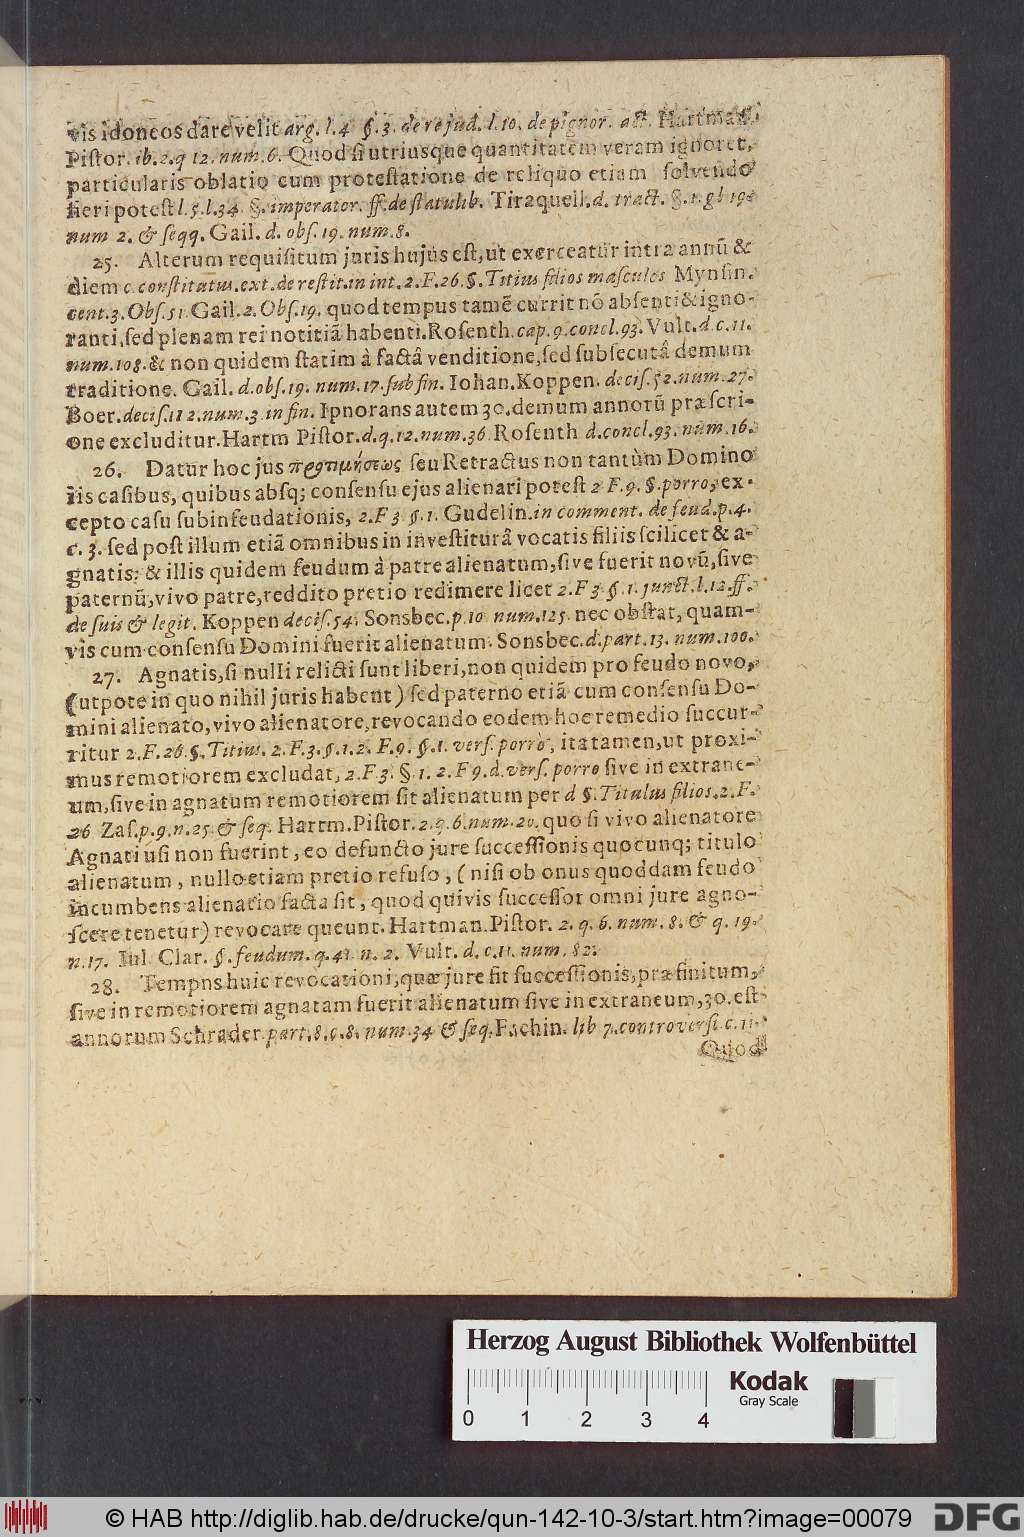 vis idoneos dare velit arg. l. 4 §. 3. de re jud. l. 10. de pignor. act. Hartman.
Pistor. ib. 2. q 12. num. 6. Quod si utriusque quantitatem veram ignoret,
particularis oblatio cum protestatione de reliquo etiam solvendo
fieri potest l. §. l. 34 §. imperator. ff. de statulib. Tiraquell. d. tract. §. 1. gl 19.
num 2. & seqq. Gail. d. obs. 19. num. 8.
25. Alterum requisitum juris hujus est, ut exerceatur intra annũ &
diem c. constitatus. ext. de restit. in int. 2. F. 26. §. Titius filios masculos Mynsin.
cent. 3. Obs. 51 Gail. 2. Obs. 19. quod tempus tamẽ currit nõ absenti & igno-
ranti, sed plenam rei notitiã habenti. Rosenth. cap. 9. concl. 93. Vult. d. c. 11.
num. 108. & non quidem statim à factâ venditione, sed subsecutâ demum
traditione. Gail. d. obs. 19. num. 17. sub fin. Iohan. Koppen. decis. 52. num. 27.
Boer. decis. 112. num. 3. in fin. Ipnorans autem 30. demum annorũ præscri-
one excluditur. Hartm Pistor. d. q. 12. num. 36 Rosenth d. concl. 93. num. 16.
26. Datur hoc jus προτιμήσεως seu Retractus non tantùm Domino
iis casibus, quibus absq; consensu ejus alienari potest 2 F. 9. §. porro, ex-
cepto casu subinfeudationis, 2. F 3 §. 1. Gudelin. in comment. de feud. p. 4.
c. 3. sed post illum etiã omnibus in investiturâ vocatis filiis scilicet & a-
gnatis: & illis quidem feudum à patre alienatum, sive fuerit novũ, sive
paternũ, vivo patre, reddito pretio redimere licet 2. F 3 §. 1. junct. l. 12. ff.
de suis & legit. Koppen decis. 54. Sonsbec. p. 10 num. 125. nec obstat, quam-
vis cum consensu Domini fuerit alienatum. Sonsbec. d. part. 13. num. 100.
27. Agnatis, si nulli relicti sunt liberi, non quidem pro feudo novo,
(utpote in quo nihil juris habent) sed paterno etiã cum consensu Do-
mini alienato, vivo alienatore, revocando eodem hoc remedio succur-
ritur 2. F. 26. §. Titius. 2. F. 3. §. 1. 2. F. 9. §. 1. vers. porro, ita tamen, ut proxi-
mus remotiorem excludat, 2. F 3. § 1. 2. F 9. d. vers. porro sive in extrane-
um, sive in agnatum remotiorem sit alienatum per d §. Titulus filios. 2. F.
26 Zas. p. 9. n. 25. & seq. Hartm. Pistor. 2. q. 6. num. 20. quo si vivo alienatore
Agnati usi non fuerint, eo defuncto jure successionis quocunq; titulo
alienatum, nullo etiam pretio refuso, (nisi ob onus quoddam feudo
incumbens alienatio facta sit, quod quivis successor omni jure agno-
scere tenetur) revocare queunt. Hartman. Pistor. 2. q. 6. num. 8. & q. 19.
n. 17. Iul. Clar. §. feudum. q. 41. n. 2. Vult. d. c. 11. num. 82.
28. Tempns huic revocationi, quæ jure fit successionis, præfinitum,
sive in remotiorem agnatam fuerit alienatum sive in extraneum, 30. est
annorum Schrader part. 8. c. 8. num. 34 & seq. Fachin. lib 7. controversi. c. 11.
Quod
Herzog August Bibliothek Wolfenbüttel
0 1 2 3 4
Kodak
Gray Scale
© HAB http://diglib.hab.de/drucke/qun-142-10-3/start.htm?image=00079
DFG